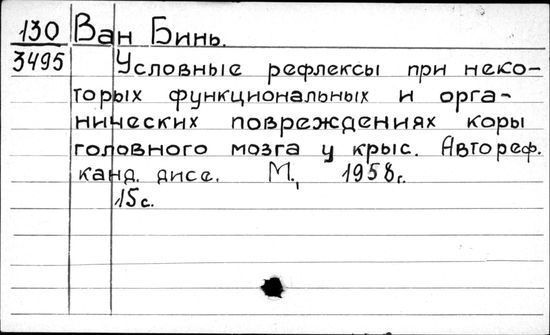 130 Ван Бинь.
3495 Условные рефлексы при неко-
торых функциональных и орга-
нических повреждениях коры
головного мозга у крыс. Автореф.
канд. дисс. М., 1958г.
15с.